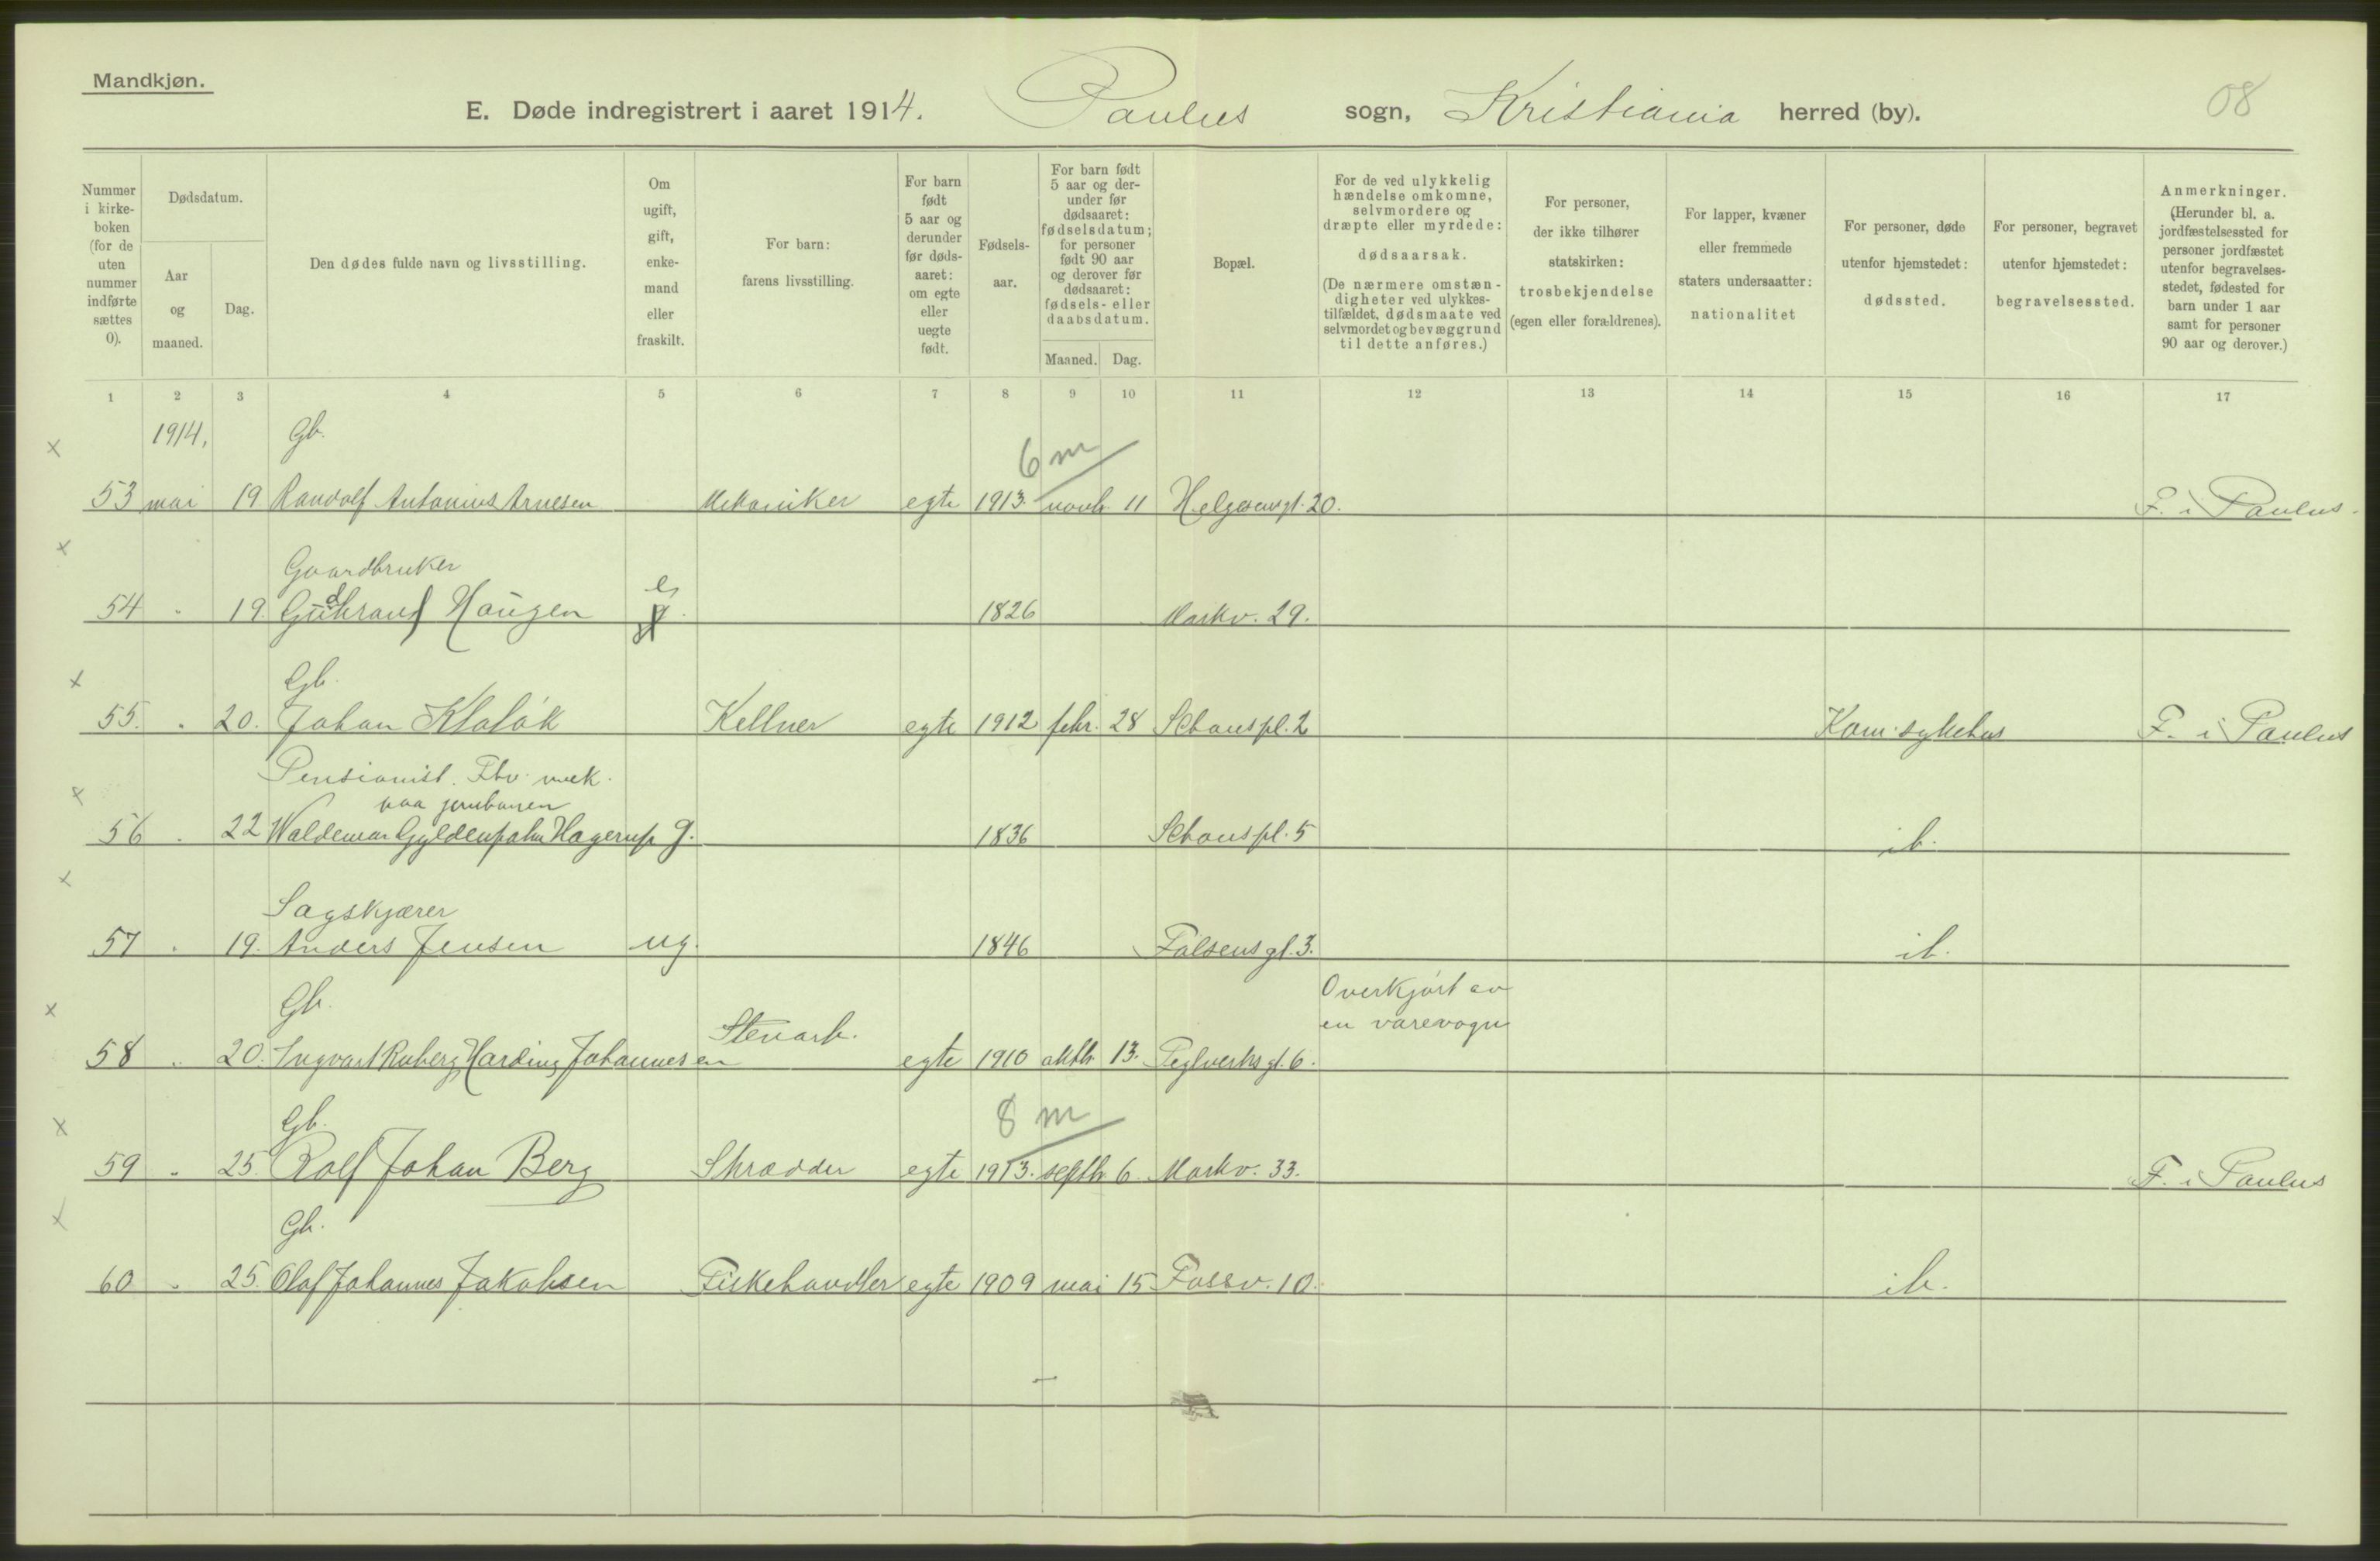 Mandkjøn.
E. Døde indregistrert i aaret 1914. Paulus sogn, Kristiania herred (by). 08
Nummer i kirke-boken (for de uten nummer indførte sættes 0).
Dødsdatum.
Aar og maaned.
Dag.
Den dødes fulde navn og livsstilling.
Om ugift, gift, enke-mand eller fraskilt.
For barn: farens livsstilling.
For barn født 5 aar og derunder før døds-aaret: om egte eller uegte født.
Fødsels-aar.
For barn født 5 aar og der-under før dødsaaret: fødselsdatum; for personer født 90 aar og derover før dødsaaret: fødsels- eller daabsdatum.
Maaned. Dag.
Bopæl.
For de ved ulykkelig hændelse omkomne, selvmordere og dræpte eller myrdede: dødsaarsak. (De nærmere omstæn-digheter ved ulykkes-tilfældet, dødsmaate ved selvmordet og bevæggrund til dette anføres.)
For personer, der ikke tilhører statskirken: trosbekjendelse (egen eller forældrenes).
For lapper, kvæner eller fremmede staters undersaatter: nationalitet
For personer, døde utenfor hjemstedet: dødssted.
For personer, begravet utenfor hjemstedet: begravelsessted.
Anmerkninger. (Herunder bl. a. jordfæstelsessted for personer jordfæstet utenfor begravelses-stedet, fødested for barn under 1 aar samt for personer 90 aar og derover.)
1 2 3 4 5 6 7 8 9 10 11 12 13 14 15 16 17
x 1914, Gb. 6 m
53 mai 19 Randolf Antonius Arnesen Mekaniker egte 1913. novb. 11 Helgesensgt. 20. F. i Paulus.
x Gaardbruker e
54 " 19. Gudbrand Haugen g. 1826 Markv. 29.
x Gb.
55. " 20. Johan Klolók Kellner egte 1912 febr. 28 Schouspl. 2 Kom. sykehus F. i Paulus
Pensionist. Fhv. mek.
x paa jernbanen
56 " 22 Waldemar Gyldenpalm Hagerup g. 1836 Schouspl. 5 ib.
x Sagskjærer
57 " 19. Anders Jensen ug. 1846 Falsensgt. 3. ib.
x Gb. Stenarb. Overkjørt av
en varevogn
58 " 20. Ingvart Roberg Harding Johannesen egte 1910 oktb. 13. Teglverksgt. 6.
x Gb. 8 m
59 " 25. Rolf Johan Berg Skrædder egte 1913. septb. 6. Markv. 33. F. i Paulus
x Gb.
60 " 25. Olaf Johannes Jakobsen Fiskehandler egte 1909 mai 15 Fossv. 10. ib.